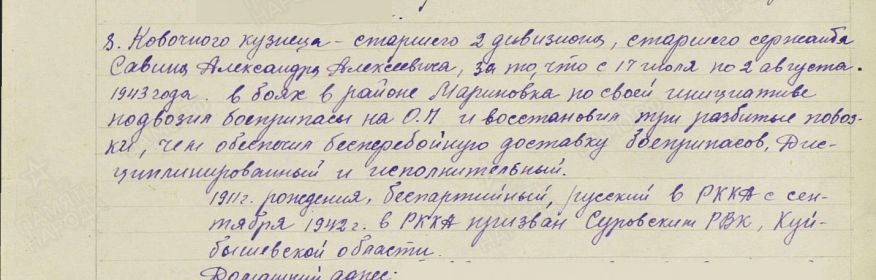 8. Ковочного кузнеца – старшего 2 дивизиона, старшего сержанта
Савина Александра Алексеевича, за то, что с 17 июля по 2 августа
1943 года. в боях в районе Мариновка по своей инициативе
подвозил боеприпасы на О.П и восстановил три разбитые повоз-
ки, чем обеспечил бесперебойную доставку боеприпасов, Дис-
циплинированный и исполнительный.
1911 г. рождения, беспартийный, русский в РККА с сен-
тября 1942 г. в РККА призван Суровским РВК, Куй-
бышевской области.
Домашний адрес: